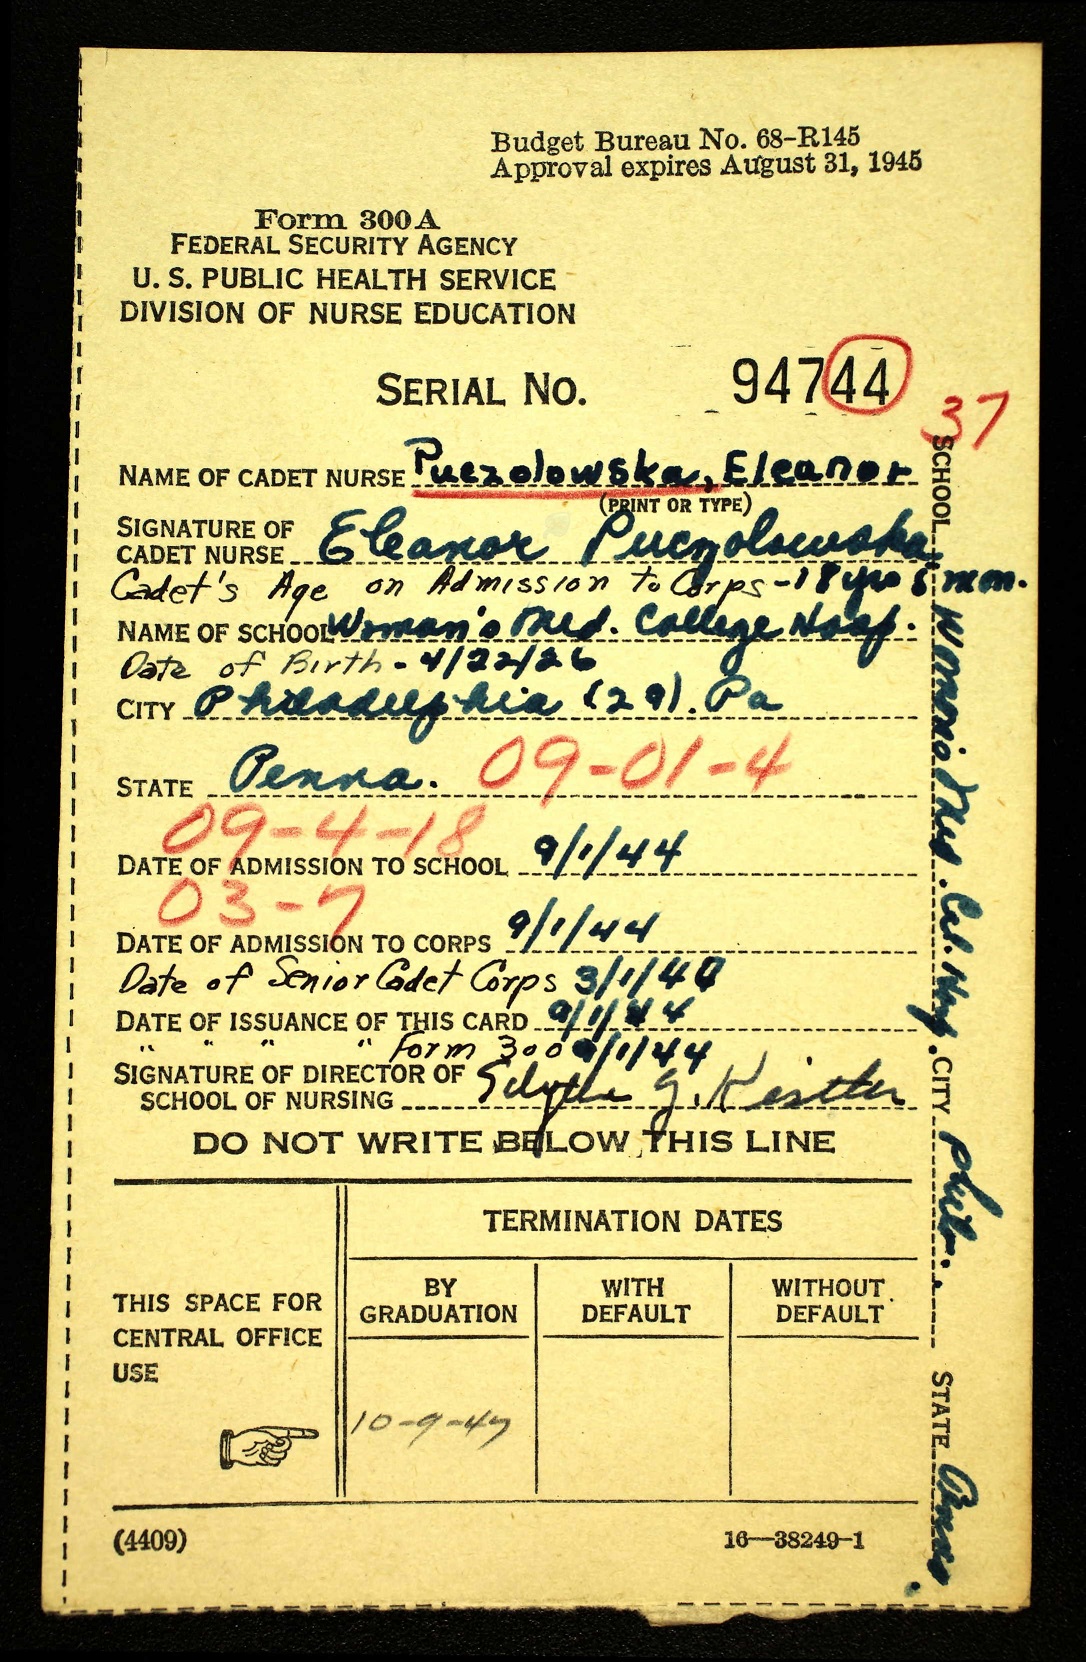 Budget Bureau No. 68-R145
Approval expires August 31, 1945
Form 300A
FEDERAL SECURITY AGENCY
U. S. PUBLIC HEALTH SERVICE
DIVISION OF NURSE EDUCATION
SERIAL NO. 94744
37
NAME OF CADET NURSE Puczolowska, Eleanor
(PRINT OR TYPE)
SIGNATURE OF
CADET NURSE Eleanor Puczolowska
Cadet's Age on Admission to Corps - 18 yrs 5 mon.
NAME OF SCHOOL Woman's Med. College Hosp.
Date of Birth - 4/22/26
CITY Philadelphia (29). Pa
STATE Penna. 09-01-4
09-4-18
DATE OF ADMISSION TO SCHOOL 9/1/44
03-7
DATE OF ADMISSION TO CORPS 9/1/44
Date of Senior Cadet Corps 3/1/4
DATE OF ISSUANCE OF THIS CARD 9/1/44
" " " " Form 300 9/1/44
SIGNATURE OF DIRECTOR OF
SCHOOL OF NURSING G. Kistler
DO NOT WRITE BELOW THIS LINE
THIS SPACE FOR
CENTRAL OFFICE
USE
TERMINATION DATES
BY
GRADUATION
WITH
DEFAULT
WITHOUT
DEFAULT
10-9-47
(4409)
16—38249-1
SCHOOL Woman's Med. Col. Hosp. CITY Phila. STATE Penna.